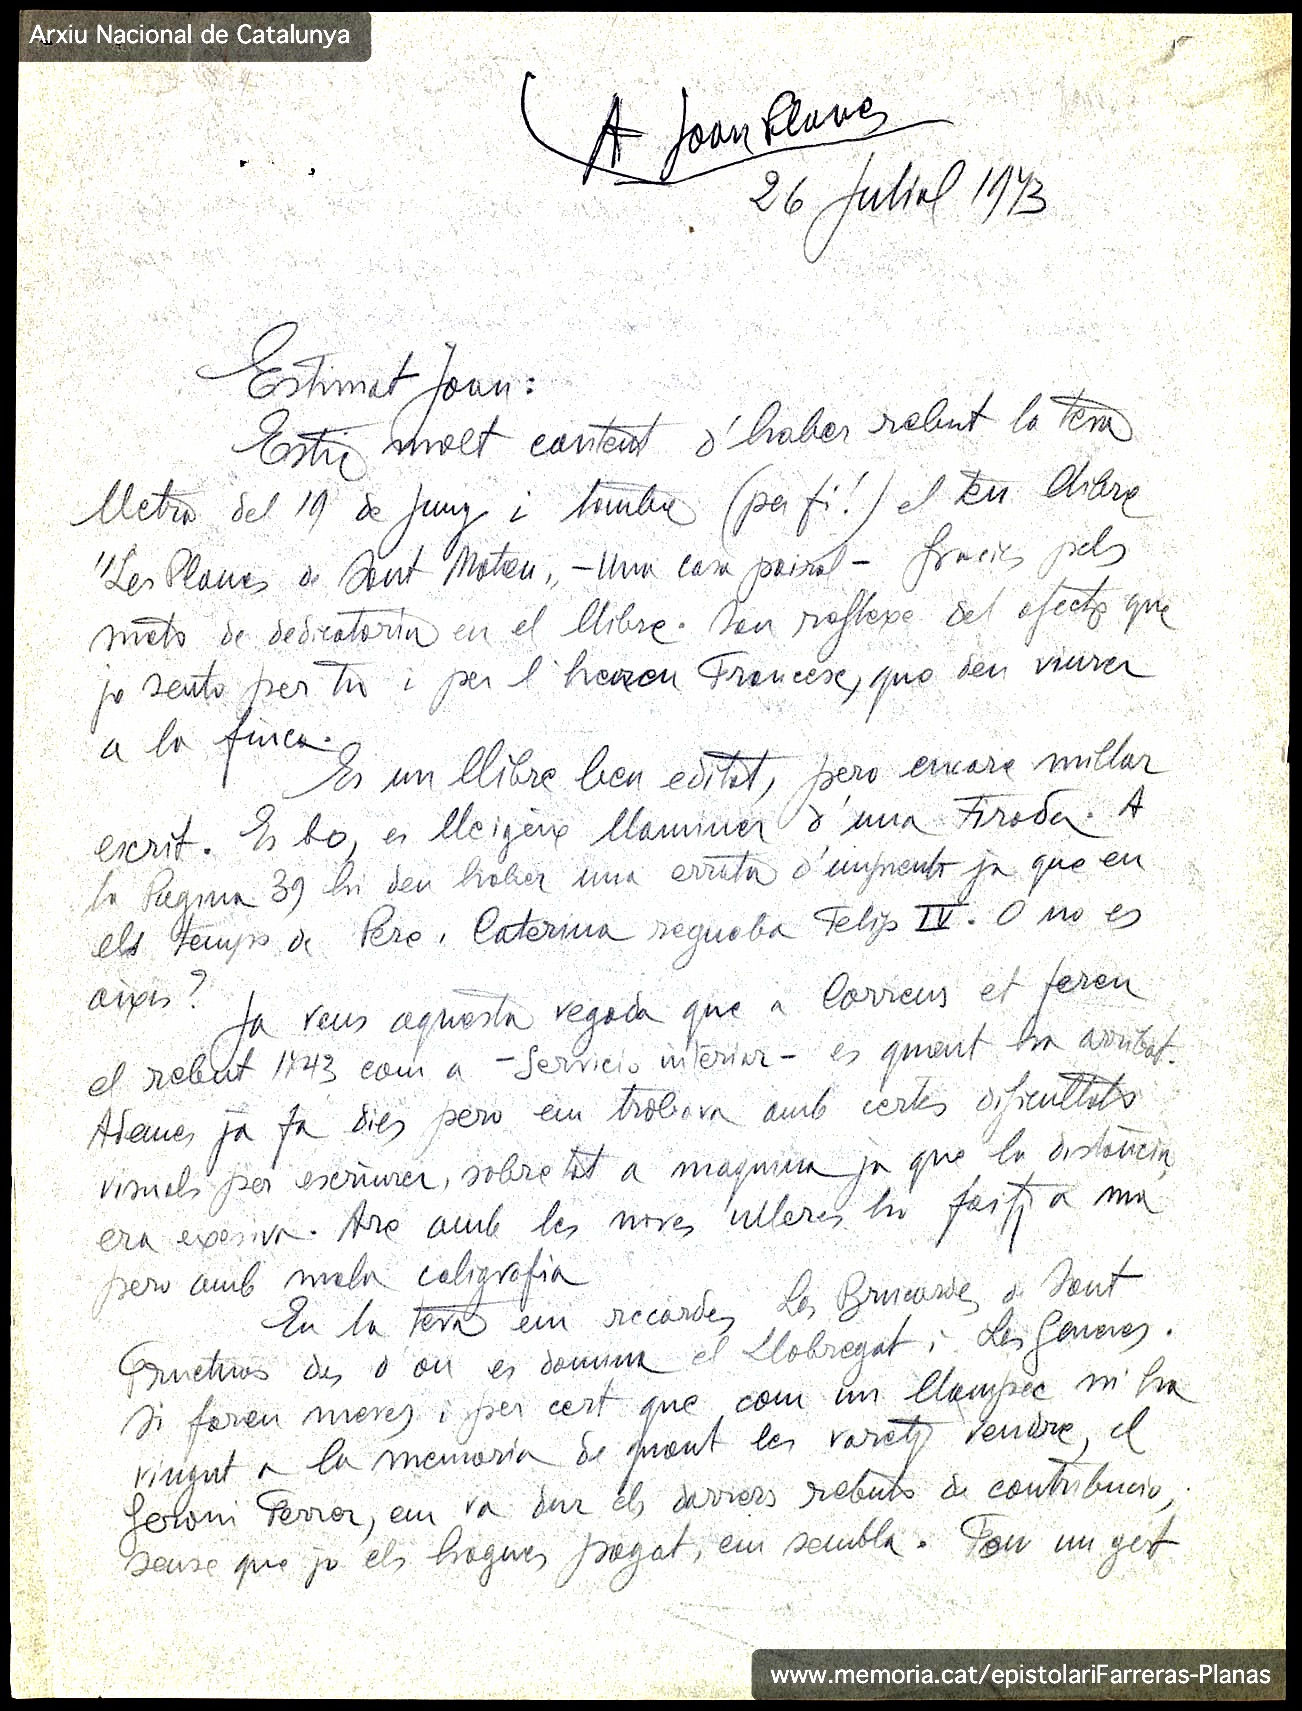 Arxiu Nacional de Catalunya
A Joan Planas
26 Juliol 1973
Estimat Joan:
Estic molt content d'haber rebut la teva
lletra del 19 de Juny i també (per fi!) el teu llibre
"Les Planes de Sant Mateu" -Una casa pairal- Gracies pels
mots de dedicatoria en el llibre. Son reflexe del afecte que
jo sento per tu i per l'hereu Francesc, que deu viurer
a la finca.
Es un llibre ben editat, pero encare millor
escrit. Es bo, es lleigeix llaminer d'una Tirada. A
la Pagina 39 hi deu haber una errata d'imprenta ja que en
els temps de Pere i Caterina regnaba Felip IV. O no es
aixis?
Ja veus aquesta vegada que a Correus et feren
el rebut 1743 com a -Servicio interior- es quant ha arribat.
Ademes ja fa dies pero em trobava amb certes dificultats
visuals per escriurer, sobre tot a maquina ja que la distáncia
era exesiva. Are amb les noves ulleres ho faitg a ma
pero amb mala caligrafia
En la teva em recordes Les Brucardes de Sant
Fructuos des d'on es domina el Llobregat i Les Generes.
Si foren meves i per cert que com un llampec m'ha
vingut a la memoria de quant les varetg vendre, el
Geroni Ferrer, em va dur els darrers rebuts de contribucio,
sense que jo els hagues pagat, em sembla. Fou un gest
www.memoria.cat/epistolariFarreras-Planas